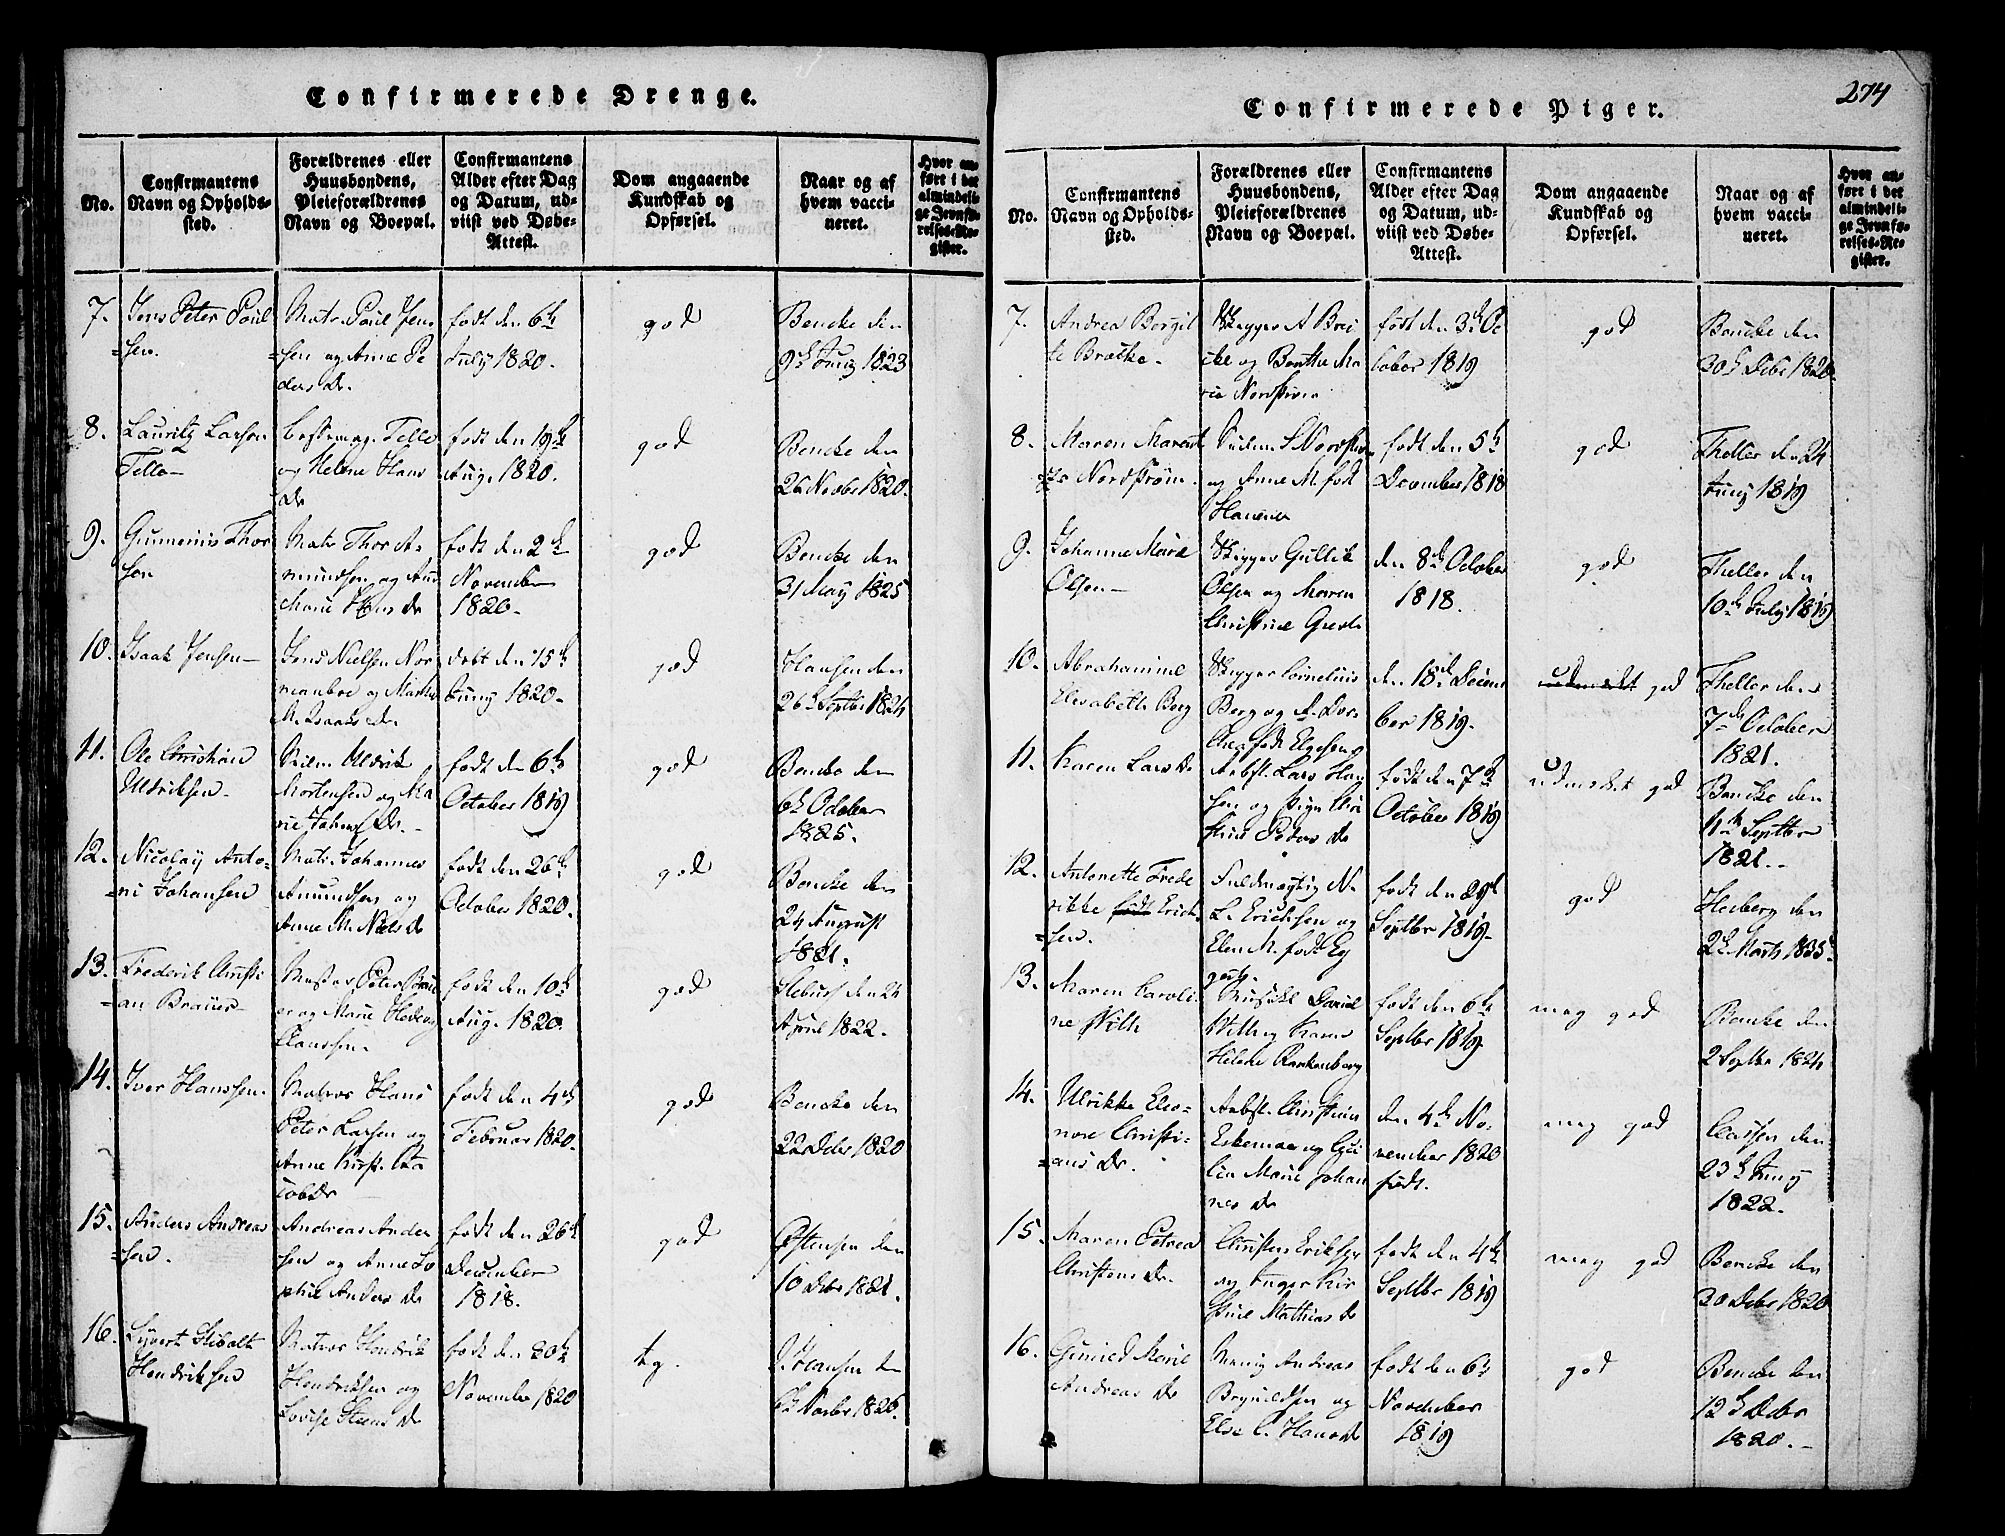 Confirmerede Drenge.
No.
Confirmantens
Navn og Opholds-
sted.
Forældrenes eller
Huusbondens,
Pleieforældrenes
Navn og Boepæl.
Confirmantens
Alder efter Dag
og Datum, ud-
viist ved Døbe-
Attest.
Dom angaaende
Kundskab og
Opførsel.
Naar og af
hvem vacci-
neret.
Hvor an-
ført i det
almindeli-
ge Jevnfø-
relses-Re-
gister.
7.
Jens Peter Poul
=sen.
Matr. Poul Jen
=sen og Anne Pe
ders Dr.
født den 6te
July 1820.
god
Bencke den
9de Juny 1823
8.
Lauritz Larsen
Telle
og Helene Hans
Dr
født den 19de
Aug. 1820.
god
Bencke den
26 Novbr 1820.
9.
Thor
sen
Matr Thor A-
mundsen og Ane
Marie Hans Dr
født den 2de
November
1820.
god
Bencke den
31 May 1825
10.
Isaak Jensen
Jens Nielsen Nor
manboe og Marthe
M. Isaacs Dr
døbt den 15de
Juny 1820.
god
Hansen den
26de Septbr 1824
11.
Ole Christian
Uldriksen
Uldrik
Mortensen og Ma
rie Johns Dr.
født den 6te
October 1819
god
Bencke den
6te October
1825.
12.
Nicolay Anto-
=ni Johansen
Matr. Johannes
Amundsen og
Anne M. Niels Dr
født den 26de
October 1820.
god
Bencke den
24 August
1821.
13.
Frederik Christi
=an Brauer
Peter Brau
er og Marie Hedevig
Claussen.
født den 10de
Aug. 1820.
god
den 24
April 1822.
14.
Iver Hanssen.
Matros Hans
Peter Larsen og
Anne Kirst. Ja
cobs Dr
født den 4de
Februar 1820.
god
Bencke den
22 Decbr 1820
15.
Anders Andreas
=sen.
Andreas Ander
sen og Anne So
phie Anders Dr
født den 26de
December
1818.
god
Østensen den
10 Decbr 1821.
16.
Syvert Sibalt
Hendriksen
Matros Hendrik
Hendriksen og
Lovise Steens Dr
født den 20de
November 1820
tg.
Hansen den
Novbr 1826.
Confirmerede Piger.
274
No.
Confirmantens
Navn og Opholds-
sted.
Forældrenes eller
Huusbondens,
Pleieforældrenes
Navn og Boepæl.
Confirmantens
Alder efter Dag
og Datum, ud-
viist ved Døbe-
Attest.
Dom angaaende
Kundskab og
Opførsel.
Naar og af
hvem vacci-
neret.
Hvor an-
ført i det
almindeli-
ge Jevnfø-
relses-Re-
gister.
7.
Andrea Bergit
te
Skipper A
og Benthe Ma
ria Nordstrøm
født den 3de Oc
tober 1819
god
Bencke den
30de Decbr 1820
8.
Maren
Nordstrøm.
S Nordstrøm
og Anne M. født
født den 5te
December 1818
god
Theller den 24
Juny 1819
9.
Johanne Marie
Olsen
Skipper Gullik
Olsen og Maren
Christine
den 8de October
1818.
god
Theller den
10de July 1819
10.
Abrahamine
Elisabeth Berg
Skipper Cornelius
Berg og A. Dor-
thea født
den 18de Decem
ber 1819.
udmerket god
Theller den
7de October
1821.
11.
Karen Lars Dr
Arbst. Lars Han
sen og Chri
stine Peders Dr
født den 7de
October 1819
udmerket god
Bencke den
11te Septbr
1821.
12.
Antonette Frede
rikke født Erich
=sen.
Fuldmægtig N.
L. Erichsen og
Elen M. født Ey
født den 29de
Septbr 1819.
god
Heiberg den
2de Marts 1835.
13.
Maren Caroli
ne With
Musikk Daniel
With og Karen
Helene Rankenberg
født den 6te
Septbr 1819
meg god
Bencke den
2 Septbr 1824
14.
Ulrikke Eleo-
nore Christi-
=ans Dr.
Arbst. Christian
Eskemoe og
Marie Johan
nes Dr
den 4de No-
vember 1820
født.
meg god
Claussen den
23de Juny
1822.
15.
Maren Petrea
Christens Dr.
Christen Eriksen
og Inger Kir
stine Mathias Dr
født den 4de
Septbr 1819
meg god
Bencke den
30 Decbr 1820
16.
Gunild Marie
Andreas Dr
Andreas
Brynildsen og
Else C. Hans Dr
født den 6te
November
1819
god
Bencke den
12de Decbr
1820.